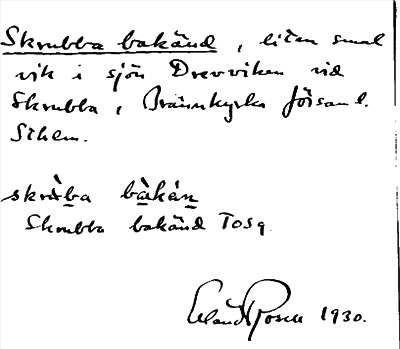 Skrubba bakänd, liten smal
vik i sjön Drevviken vid
Skrubba, Brännkyrka församl.
Sthlm.
skrùba bàkä́n
Skrubba bakänd Tosq
Erland Rosell 1930.